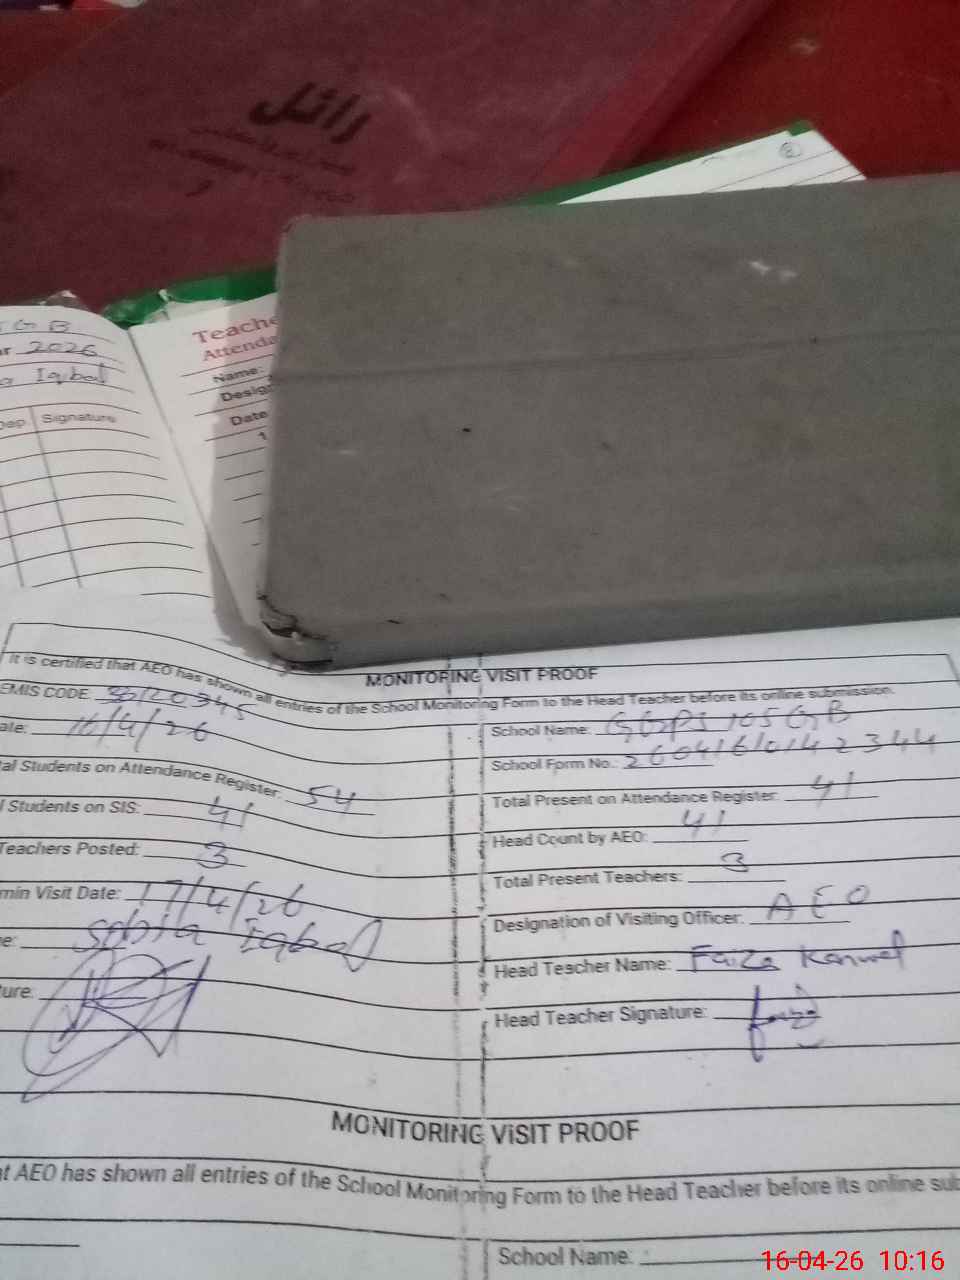 رائل
GB
2026
Iqbal
Signature
Teache
Attenda
Name:
Desig
Date
1
MONITORING VISIT PROOF
It is certified that AEO has shown all entries of the School Monitoring Form to the Head Teacher before its online submission.
EMIS CODE:
School Name: GGPS 105 GB
ate: 16/4/26
School Form No.:
tal Students on Attendance Register: 54
Total Present on Attendance Register: 41
l Students on SIS: 41
Head Count by AEO: 41
Teachers Posted: 3
Total Present Teachers: 3
min Visit Date: 17/4/26
Designation of Visiting Officer: AEO
e: Sobia Iqbal
Head Teacher Name: Faiza Kanwal
ture:
Head Teacher Signature:
MONITORING VISIT PROOF
t AEO has shown all entries of the School Monitoring Form to the Head Teacher before its online sub
School Name:
16-04-26 10:16